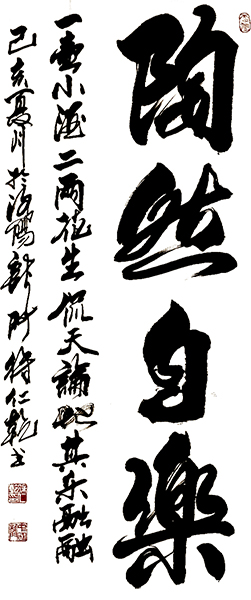 陶然自樂
一壺小酒二兩花生侃天論地其樂融融
己亥夏月於洛陽
仁乾書